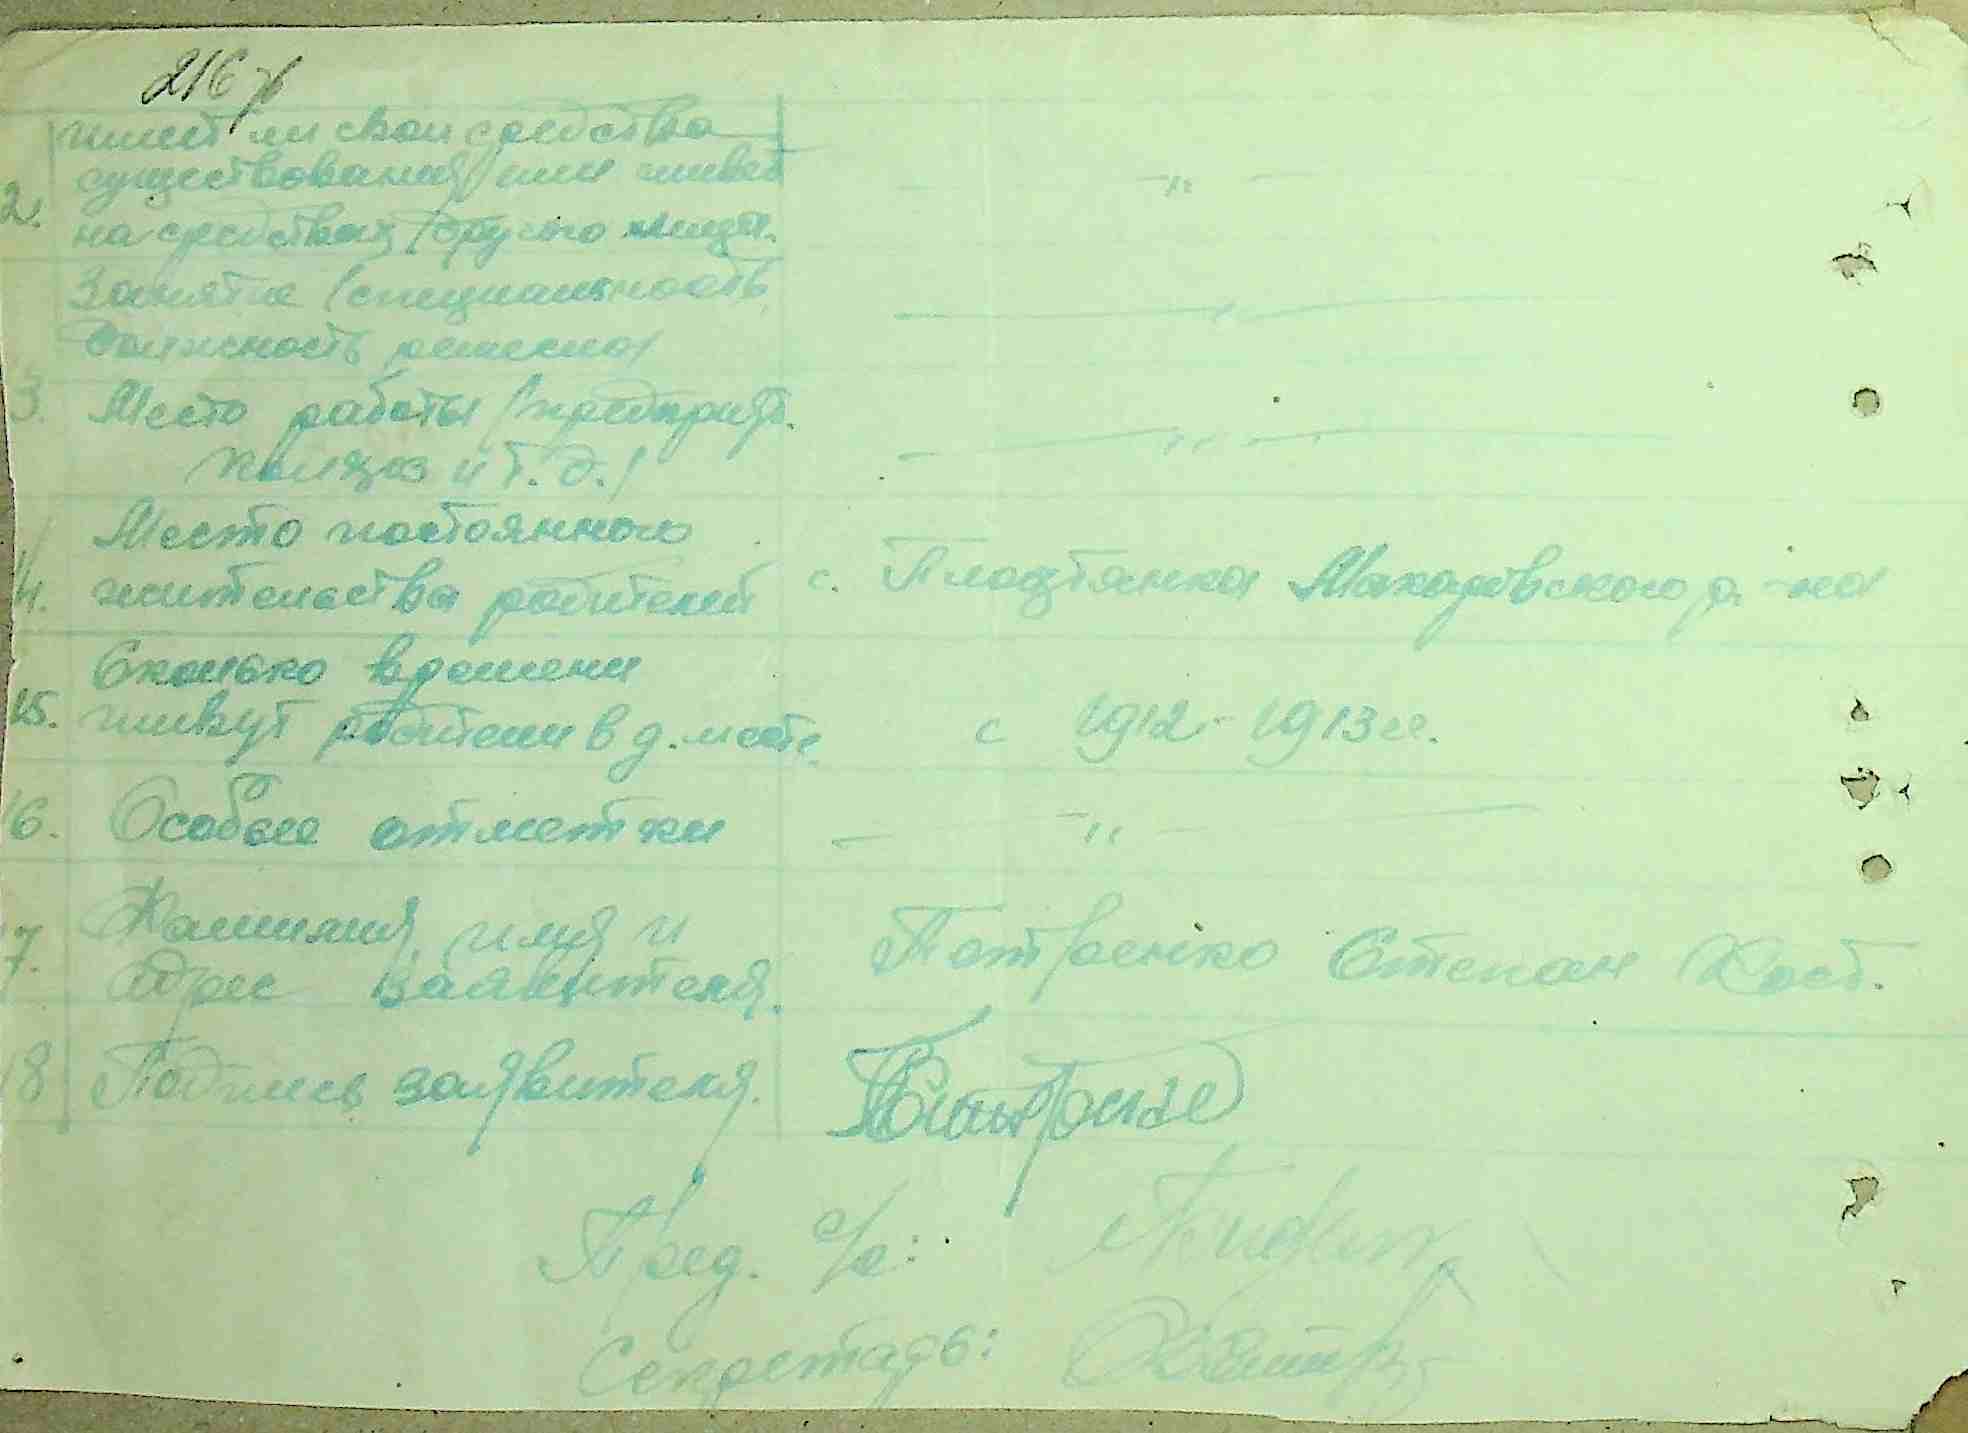 216
имеет ли свои средства
2. существования или живет
на средствах другого лица.
Занятие (специальность,
должность, ремесло)
3. Место работы (предприят.
колхоз и т.д.)
Место постоянного
14. жительства родителей с. Плахтянка Макаровского р-на
Сколько времени
15. живут родители в д. месте с 1912-1913 гг.
16. Особые отметки — " —
Фамилия, имя и
17. адрес заявителя. Петренко Степан Кост.
18 Подпись заявителя.
Пред. с/с:
Секретарь: